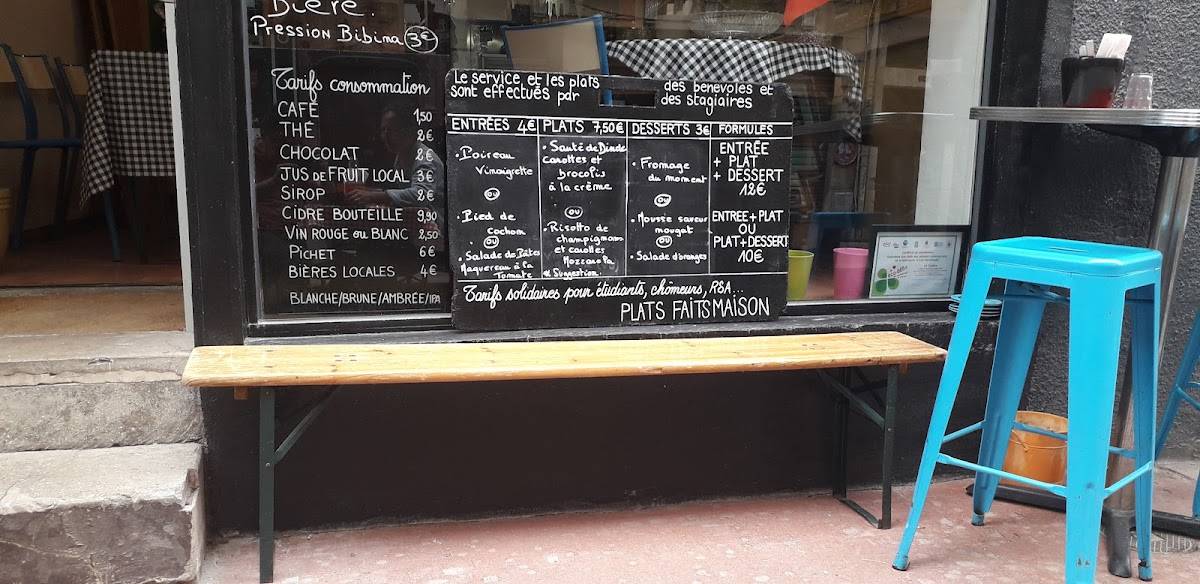 Bière.
Pression Bibina 3€
Tarifs consommation
CAFÉ 1,50
THÉ 2€
CHOCOLAT 2€
JUS de FRUIT LOCAL 3€
SIROP 2€
CIDRE BOUTEILLE 9,90
VIN ROUGE ou BLANC 2,50
PICHET 6€
BIÈRES LOCALES 4€
BLANCHE/BRUNE/AMBRÉE/IPA
Le service et les plats
sont effectués par
des bénévoles et
des stagiaires
ENTRÉES 4€
• Poireau
Vinaigrette
ou
• Pied de
cochon
ou
• Salade de Pâtes
Maquereau à la
Tomate
PLATS 7,50€
• Sauté de Dinde
carottes et
brocolis
à la crème
ou
• Risotto de
champignons
et carottes
Mozzarola
& Suggestion.
DESSERTS 3€
• Fromage
du moment
ou
• Mousse saveur
nougat
ou
• Salade d'oranges
FORMULES
ENTRÉE
+ PLAT
+ DESSERT
12€
ENTREE+PLAT
OU
PLAT+DESSERT
10€
Tarifs solidaires pour étudiants, chômeurs, RSA...
PLATS FAITS MAISON